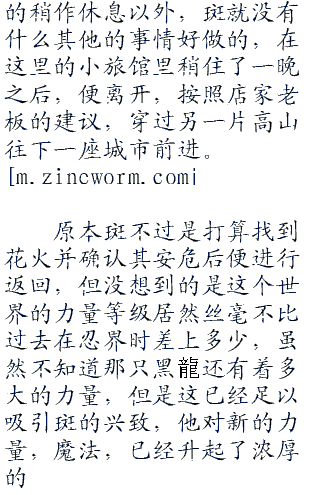 的稍作休息以外，斑就没有
什么其他的事情好做的，在
这里的小旅馆里稍住了一晚
之后，便离开，按照店家老
板的建议，穿过另一片高山
往下一座城市前进。
[m.zincworm.com]

原本斑不过是打算找到
花火并确认其安危后便进行
返回，但没想到的是这个世
界的力量等级居然丝毫不比
过去在忍界时差上多少，虽
然不知道那只黑龍还有着多
大的力量，但是这已经足以
吸引斑的兴致，他对新的力
量，魔法，已经升起了浓厚
的